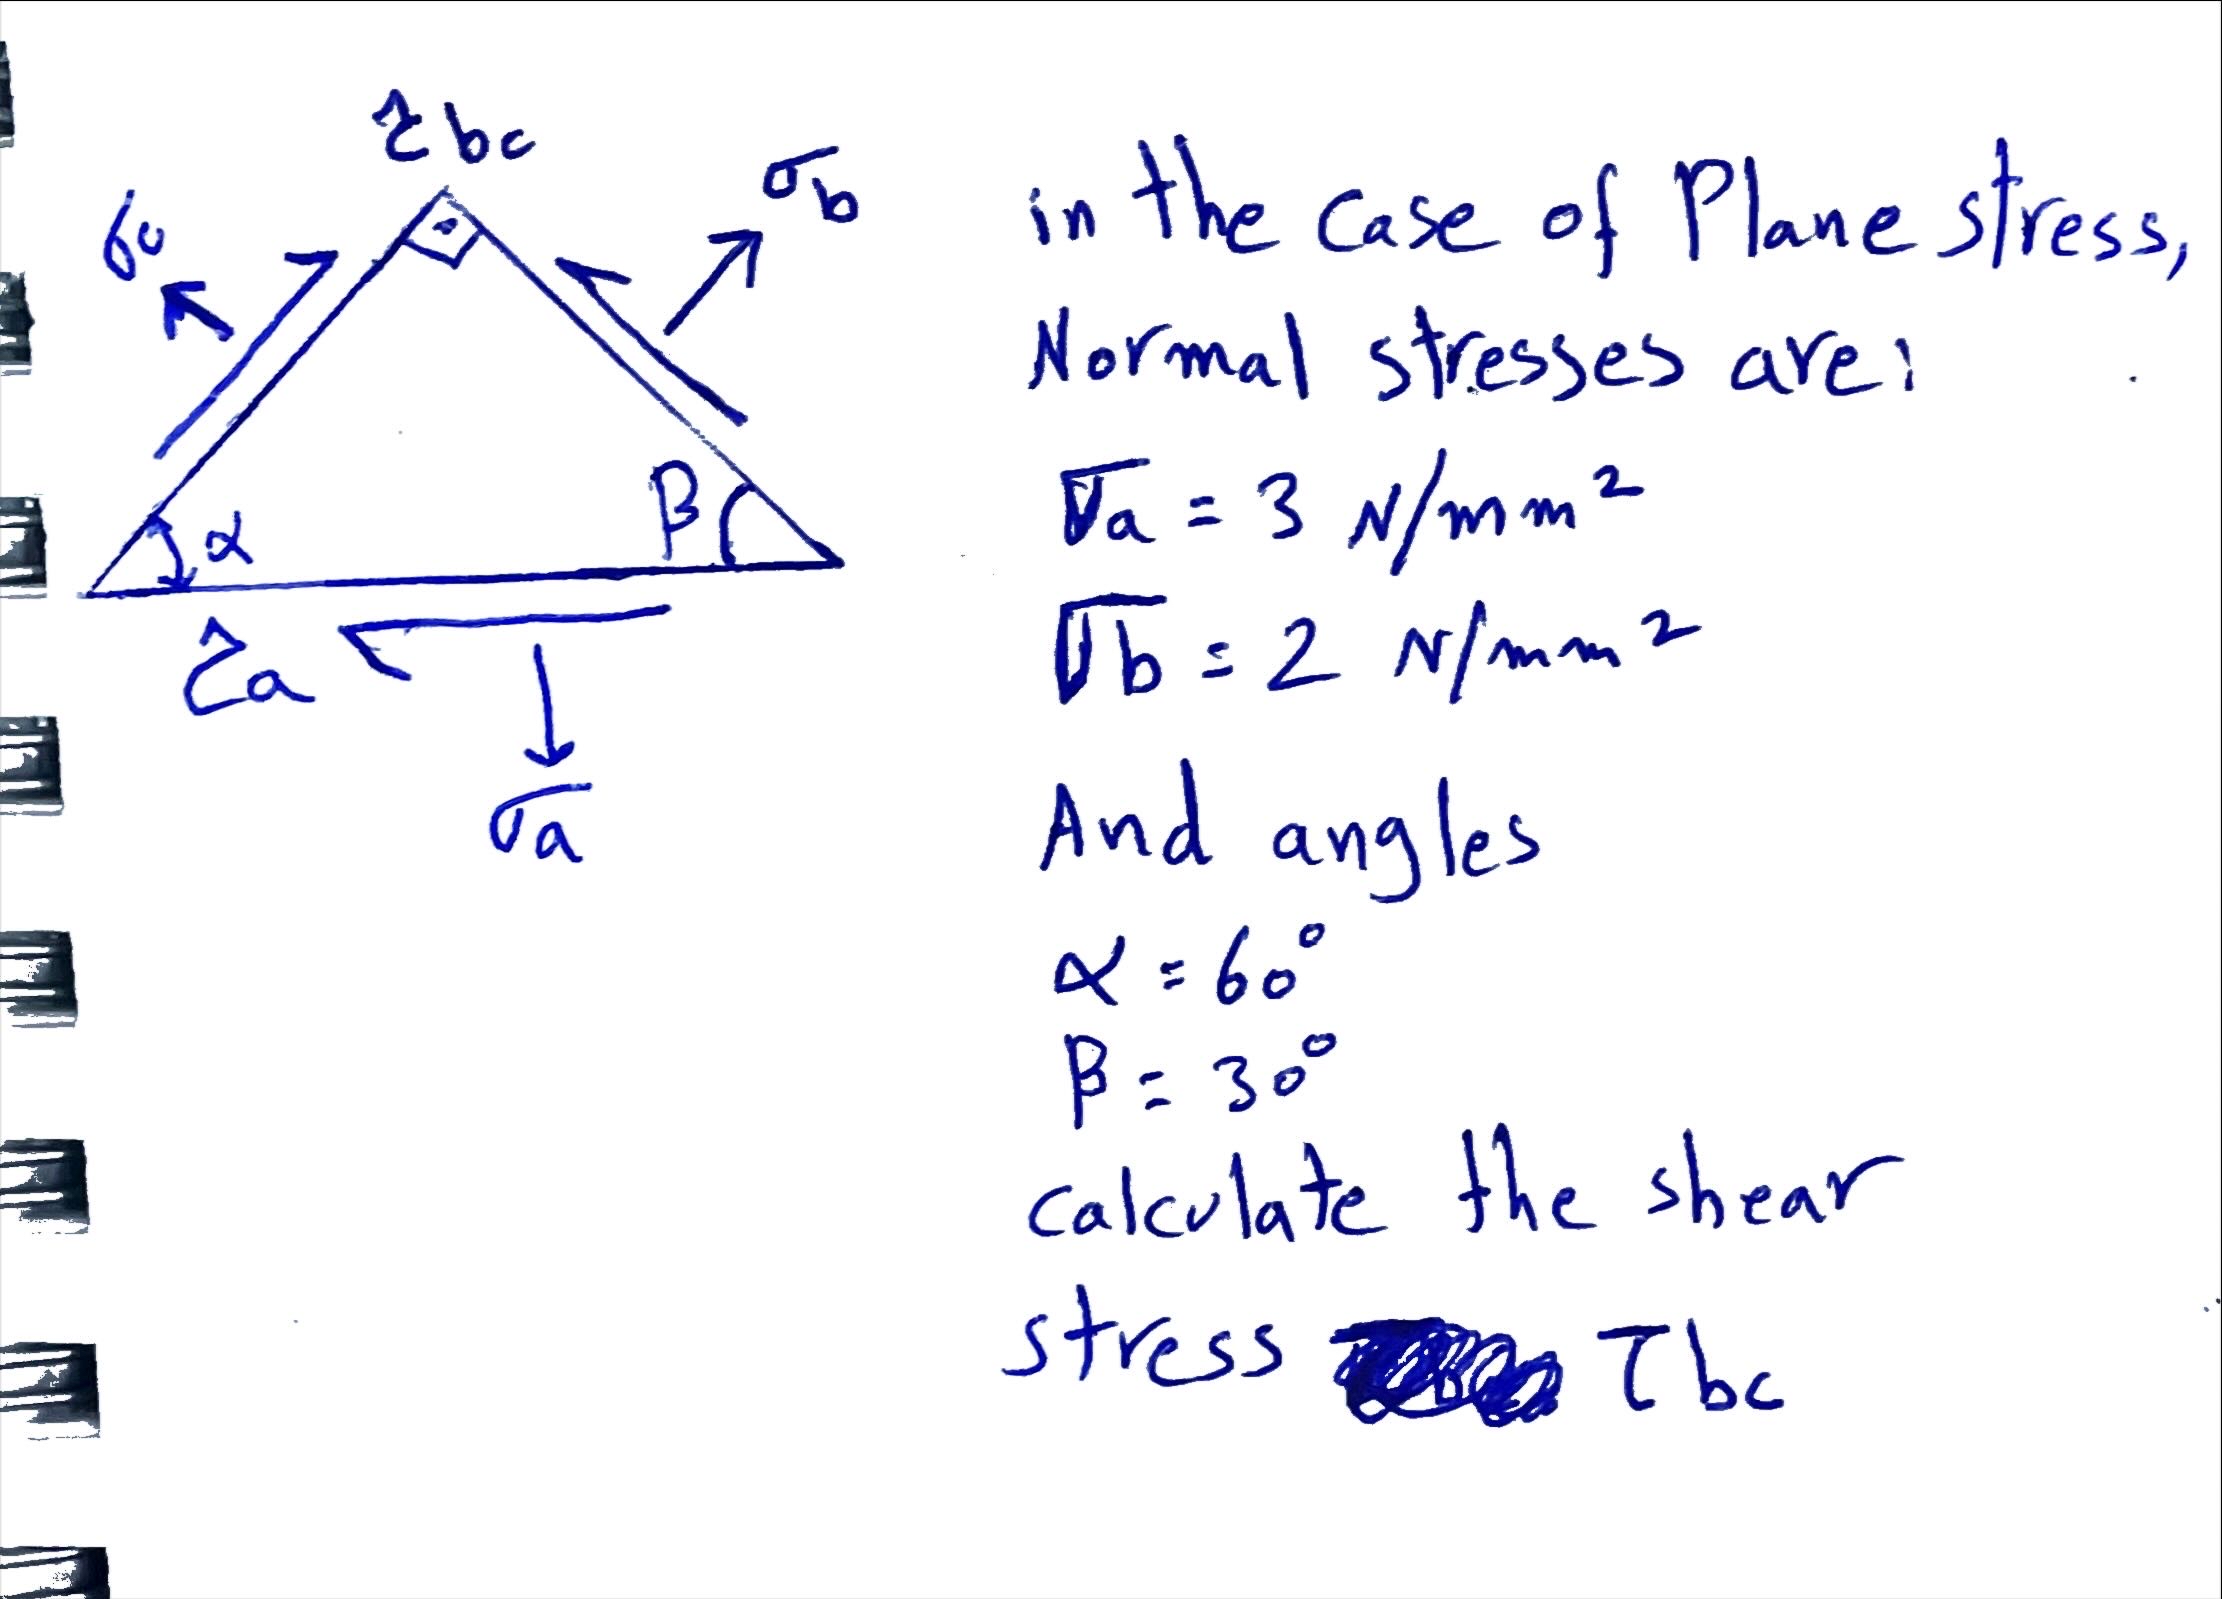 τbc
σc
σb
α
β
τa
σa
in the case of Plane stress,
Normal stresses are:
σa = 3 N/mm²
σb = 2 N/mm²
And angles
α = 60°
β = 30°
calculate the shear
stress τbc